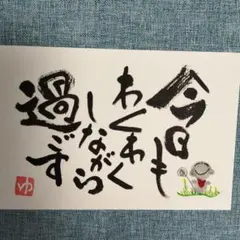 今日も
わくわく
しながら
過ごす
ゆ